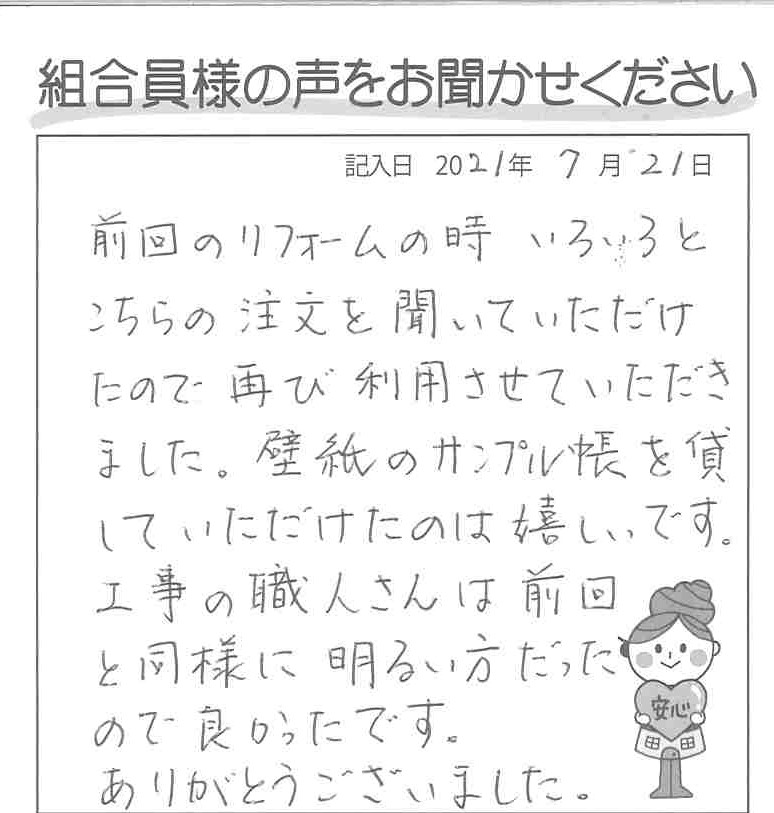 組合員様の声をお聞かせください
記入日 2021年 7月21日
前回のリフォームの時 いろいろと
こちらの注文を聞いていただけ
たので再び利用させていただき
ました。壁紙のサンプル帳を貸
していただけたのは嬉しいです。
工事の職人さんは前回
と同様に明るい方だった
ので良かったです。
ありがとうございました。
安心